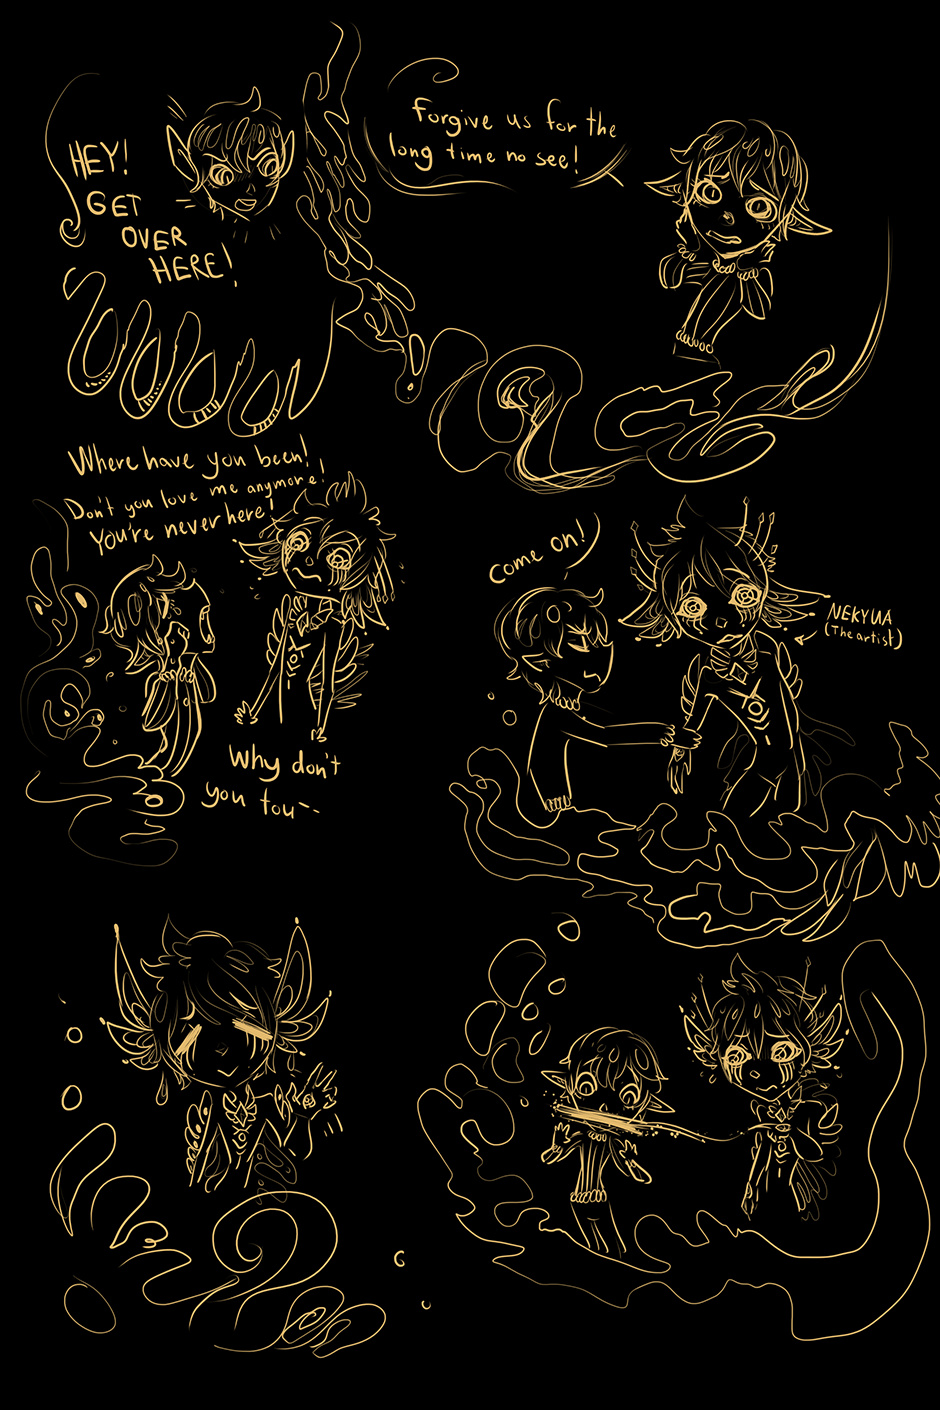 HEY!
GET
OVER
HERE!
Forgive us for the
long time no see!
Where have you been!
Don't you love me anymore!
You're never here!
Why don't
you tou--
come on!
NEKYUA
(The artist)